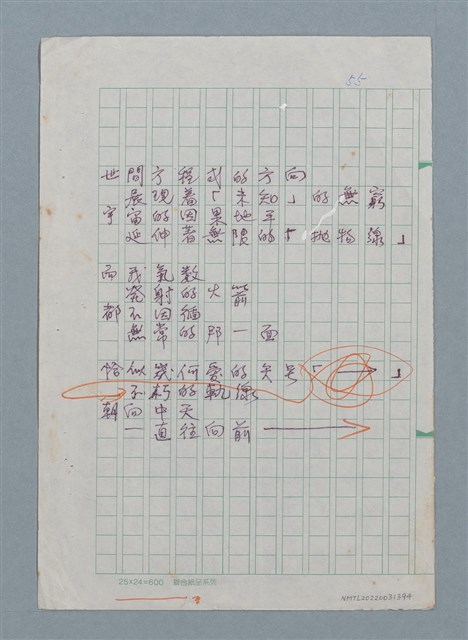 55
世間方程式的方向
展現着「未知」的無窮
宇宙的因果地平
延伸著無限的「拋物線」
而我氣數
發射的火箭
都不因循
無常的那一面
恰似幾何愛的矢号「→」
不朽的軌線
朝向中天
一直往向前→
25×24=600
NMTL20220031344